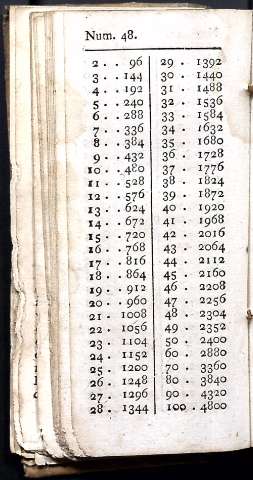 Num. 48.
2 . . 96
3 . . 144
4 . . 192
5 . . 240
6 . . 288
7 . . 336
8 . . 384
9 . . 432
10 . . 480
11 . . 528
12 . . 576
13 . . 624
14 . . 672
15 . . 720
16 . . 768
17 . . 816
18 . . 864
19 . . 912
20 . . 960
21 . 1008
22 . 1056
23 . 1104
24 . 1152
25 . 1200
26 . 1248
27 . 1296
28 . 1344
29 . 1392
30 . 1440
31 . 1488
32 . 1536
33 . 1584
34 . 1632
35 . 1680
36 . 1728
37 . 1776
38 . 1824
39 . 1872
40 . 1920
41 . 1968
42 . 2016
43 . 2064
44 . 2112
45 . 2160
46 . 2208
47 . 2256
48 . 2304
49 . 2352
50 . 2400
60 . 2880
70 . 3360
80 . 3840
90 . 4320
100 . 4800